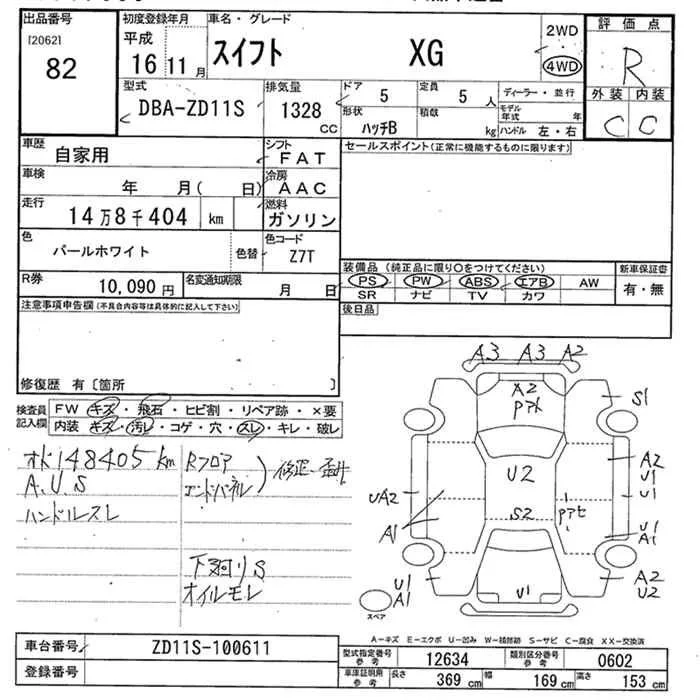 出品番号
[2062]
82
初度登録年月
平成
16 11 月
車名・グレード
スイフト XG
2WD
4WD
評価点
R
外装 内装
C C
型式
DBA-ZD11S
排気量
1328
CC
ドア
5
定員
5 人
形状
ハッチB
積載
kg
ディーラー・並行
モデル年式 年
ハンドル 左・右
車歴
自家用
シフト
FAT
車検
年 月( 日)
冷房
AAC
走行
14万8千404 km
燃料
ガソリン
色
パールホワイト
色替
色コード
Z7T
R券
10,090 円
名変通知期限
月 日
セールスポイント(正常に機能するものに限ります)
装備品 (純正品に限り○をつけてください)
PS PW ABS エアB AW
SR ナビ TV カワ
新車保証書
有・無
後日品
注意事項申告欄(不具合内容等は具体的に記入して下さい)
修復歴 有〔箇所 〕
検査員記入欄
FW キズ・飛石・ヒビ割・リペア跡・×要
内装 キズ・汚レ・コゲ・穴・スレ・キレ・破レ
オド148405km
A.U.S
ハンドルスレ
Rフロア
エンドパネル
修正・歪
下廻りS
オイルモレ
A3 A3 A2
A2
S1
U2
A2
U1
U1
UA2
A1
S2
U1
A1
U1
A1
A2
U2
U1
スペア
A-キズ E-エクボ U-凹み W-補修跡 S-サビ C-腐食 XX-交換済
車台番号
ZD11S-100611
登録番号
型式指定番号 参考
12634
類別区分番号 参考
0602
車庫証明用 参考
長さ 369 cm
幅 169 cm
高さ 153 cm